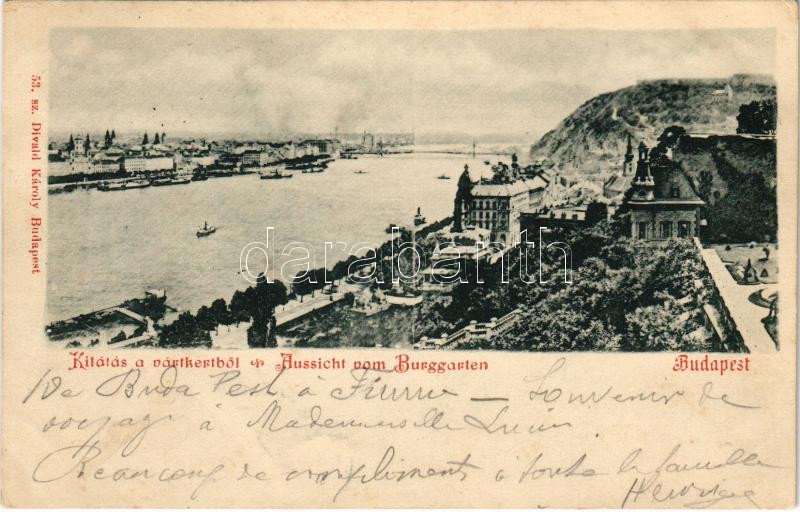 53. sz. Divald Károly Budapest
darabanth
Kilátás a vártkertből Aussicht vom Burggarten
Budapest
De Buda Pest à Fiume — Souvenir de
voyage à Mademoiselle
Beaucoup de compliments à toute la famille